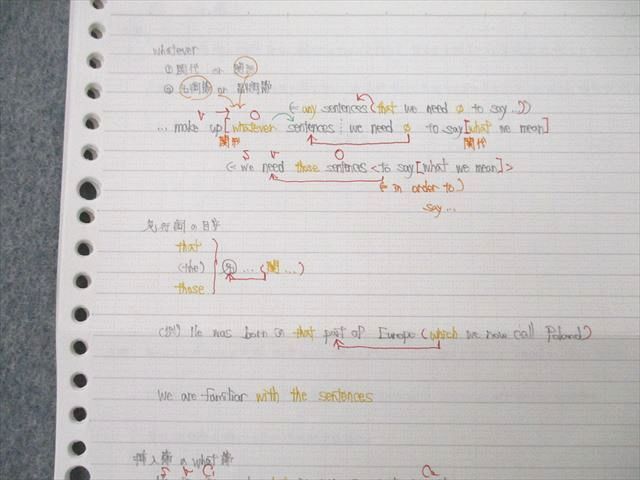 whatever
① 関代 or 関形
② 名詞節 or 副詞節
V O (= any sentences (that we need φ to say…))
… make up [whatever sentences we need φ to say [what we mean]
関形 関代
S V O
(= we need those sentences <to say [what we mean]>
(= in order to)
say …
先行詞の目印
that
(the)
those
名 … (関 …)
(例) He was born in that part of Europe (which we now call Poland)
We are familiar with the sentences
挿入節 what節
S V